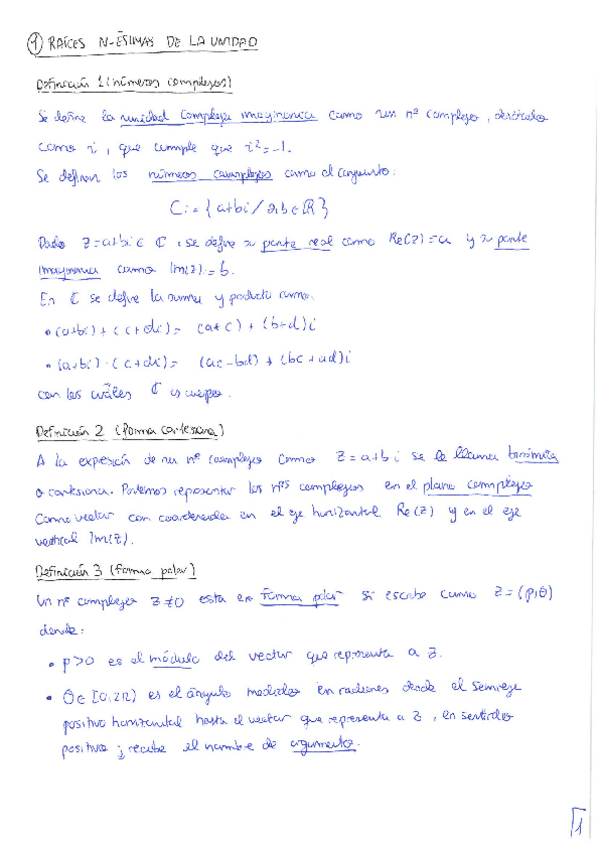 ① RAÍCES N-ÉSIMAS DE LA UNIDAD
Definición 1 (números complejos)
Se define la unidad compleja imaginaria como un nº complejo, denotado
como i, que cumple que i²=-1.
Se definen los números complejos como el conjunto:
ℂ := {a+bi / a,b ∈ ℝ}
Dado z=a+bi ∈ ℂ, se define su parte real como Re(z)=a y su parte
imaginaria como Im(z)=b.
En ℂ se define la suma y producto como:
• (a+bi) + (c+di) = (a+c) + (b+d)i
• (a+bi)·(c+di) = (ac-bd) + (bc+ad)i
con las cuáles ℂ es cuerpo.
Definición 2 (forma cartesiana)
A la expresión de un nº complejo como z=a+bi se le llama binómica
o cartesiana. Podemos representar los nºs complejos en el plano complejo
como vector con coordenadas en el eje horizontal Re(z) y en el eje
vertical Im(z).
Definición 3 (forma polar)
Un nº complejo z≠0 está en forma polar si escribe como z=(ρ,θ)
donde:
• ρ>0 es el módulo del vector que representa a z.
• θ∈[0,2π) es el ángulo medido en radianes desde el semieje
positivo horizontal hasta el vector que representa a z, en sentido
positivo y recibe el nombre de argumento.
1